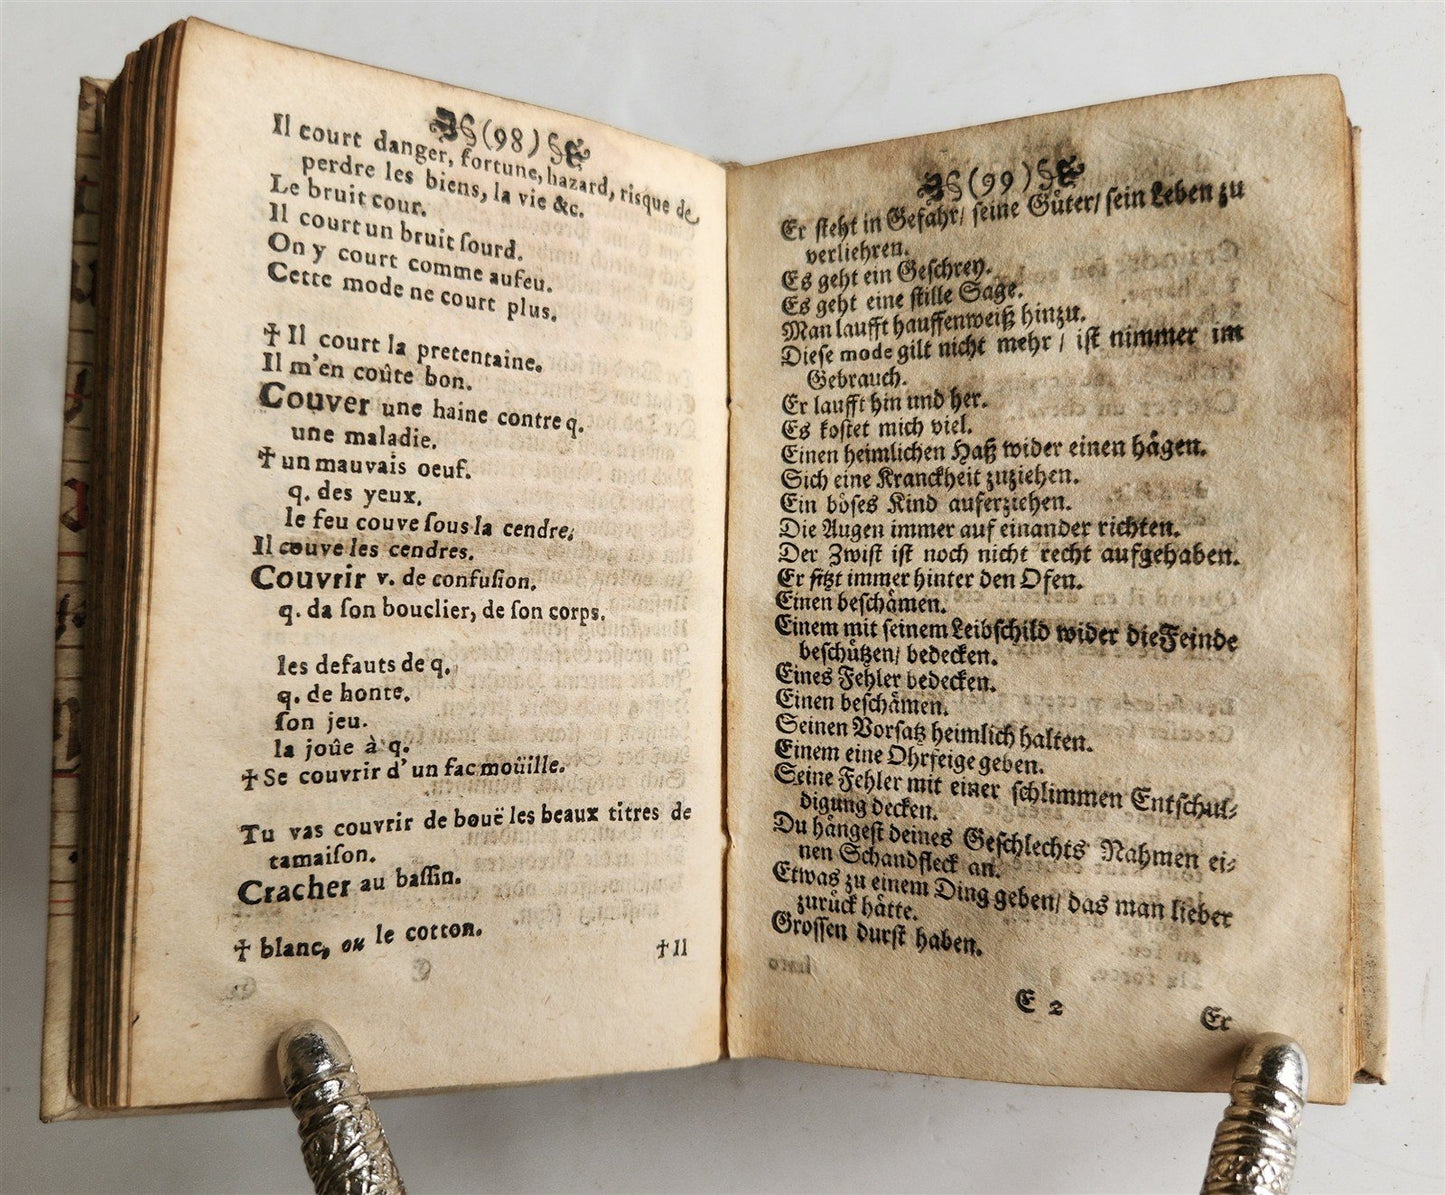 (98)
Il court danger, fortune, hazard, risque de
perdre les biens, la vie &c.
Le bruit cour.
Il court un bruit ſourd.
On y court comme aufeu.
Cette mode ne court plus.
† Il court la pretentaine.
Il m'en coûte bon.
Couver une haine contre q.
une maladie.
† un mauvais oeuf.
q. des yeux.
le feu couve ſous la cendre;
Il couve les cendres.
Couvrir v. de confuſion.
q. da ſon bouclier, de ſon corps.
les defauts de q.
q. de honte.
ſon jeu.
la joûe à q.
† Se couvrir d'un fac moüille.
Tu vas couvrir de bouë les beaux titres de
tamaiſon.
Cracher au baſſin.
† blanc, ou le cotton.
† Il
(99)
Er ſteht in Gefahr/ ſeine Guͤter/ ſein Leben zu
verliehren.
Es geht ein Geſchrey.
Es geht eine ſtille Sage.
Man laufft hauffenweiß hinzu.
Dieſe mode gilt nicht mehr / iſt nimmer im
Gebrauch.
Er laufft hin und her.
Es koſtet mich viel.
Einen heimlichen Haß wider einen haͤgen.
Sich eine Kranckheit zuziehen.
Ein boͤſes Kind auferziehen.
Die Augen immer auf einander richten.
Der Zwiſt iſt noch nicht recht aufgehaben.
Er ſitzt immer hinter den Ofen.
Einen beſchaͤmen.
Einem mit ſeinem Leibſchild wider die Feinde
beſchuͤtzen/ bedecken.
Eines Fehler bedecken.
Einen beſchaͤmen.
Seinen Vorſatz heimlich halten.
Einem eine Ohrfeige geben.
Seine Fehler mit einer ſchlimmen Entſchul⸗
digung decken.
Du haͤngeſt deines Geſchlechts Nahmen ei⸗
nen Schandfleck an.
Etwas zu einem Ding geben/ das man lieber
zuruͤck haͤtte.
Groſſen durſt haben.
E 2
Er